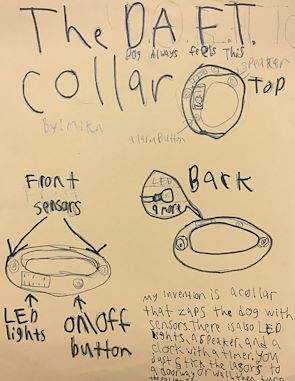 The D.A.F.T.
Dog Always feels This
collar
speaker
Top
By: Mika
alarm button
Front
sensors
LED
& more
Bark
LED
lights
on/off
button
my invention is a collar
that zaps the dog with
sensors. There is also LED
lights, a speaker, and a
clock with a timer. you
just stick the lasors to
a doorway or wall then turn